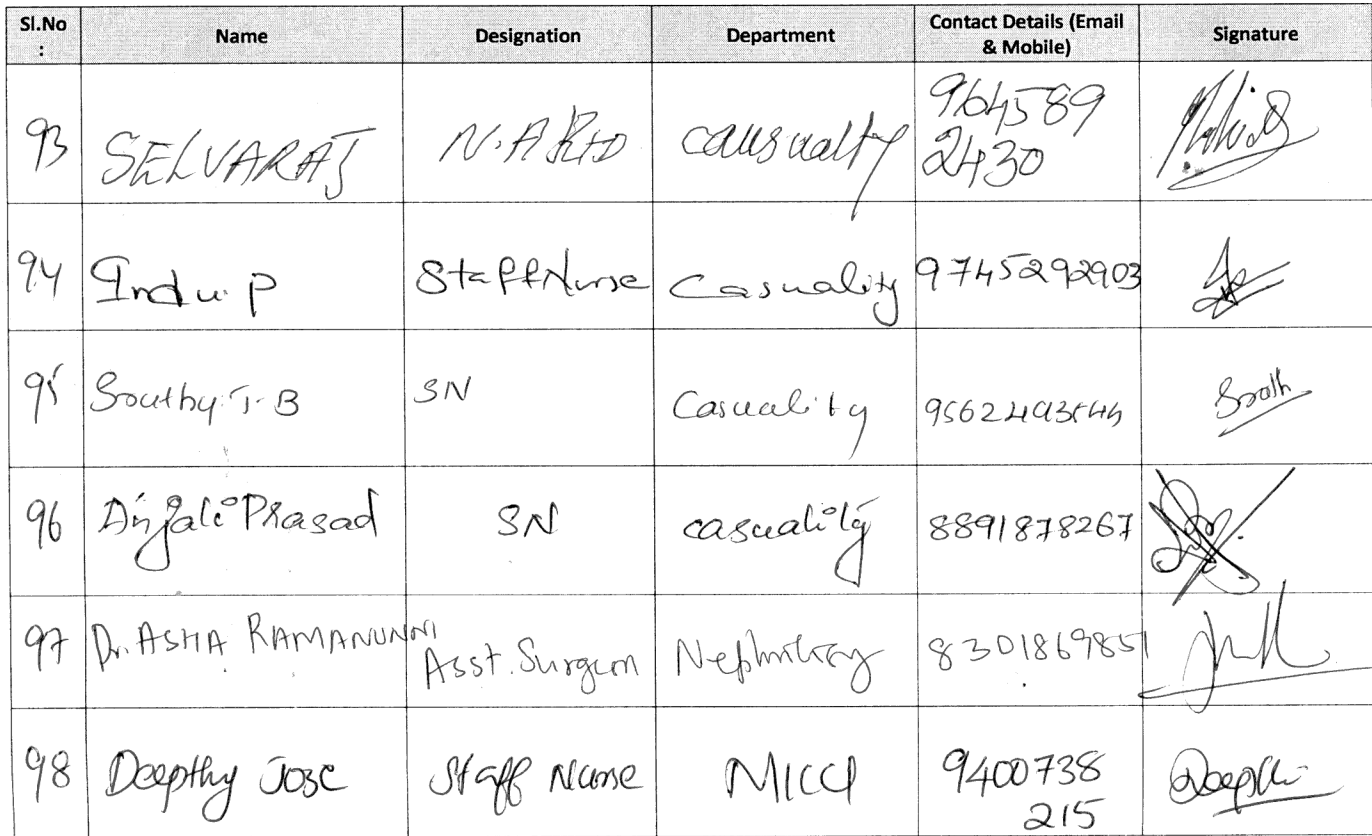 Sl.No : Name Designation Department Contact Details (Email & Mobile) Signature
93 SELVARAJ causualty 964589
2430
94 Indu. P Staff Nurse Casuality 9745292903
95 T. B SN Casuality
96 Anjali Prasad SN casuality 8891878267
97 Dr. ASHA RAMANUNNI Asst. Surgeon Nephrology 8301869851
98 Deepthy Jose Staff Nurse MICU 9400738
215 Deepthi